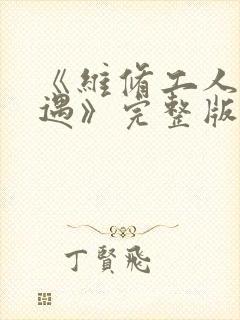 《維脩工人
遇》完整版
丁賢飛